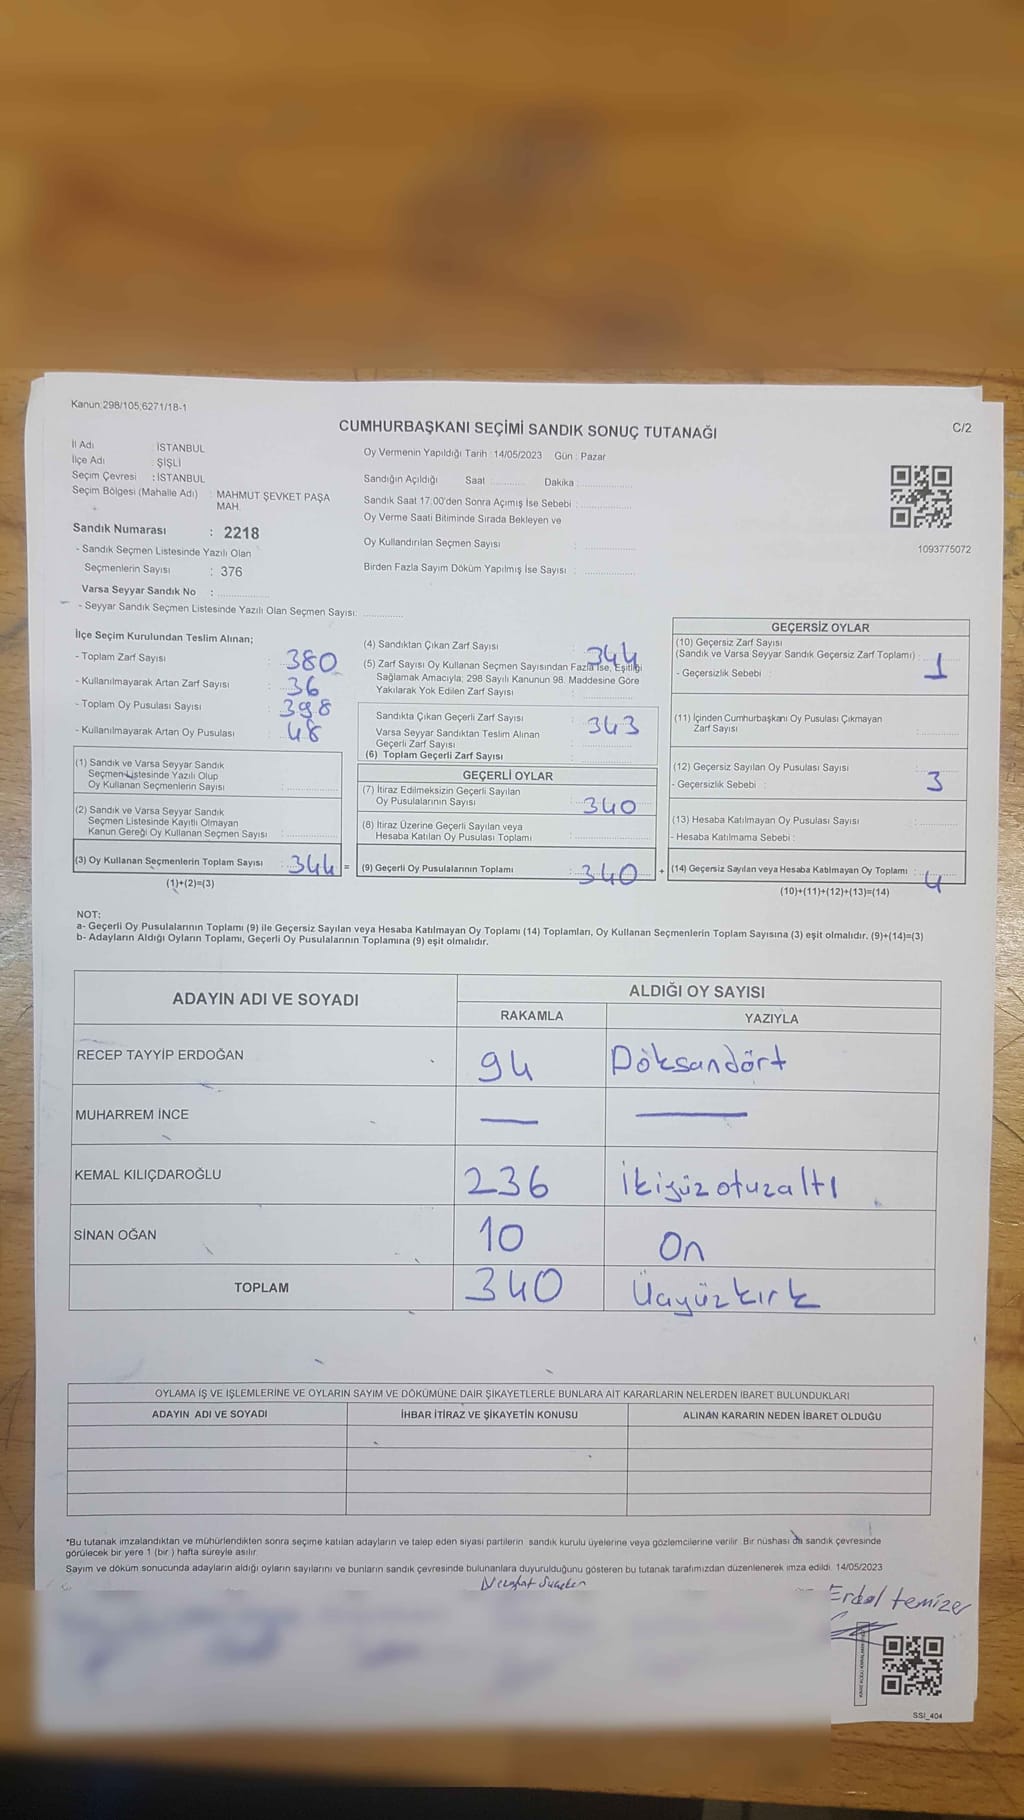 Kanun:298/105;6271/18-1
C/2
CUMHURBAŞKANI SEÇİMİ SANDIK SONUÇ TUTANAĞI
İl Adı : İSTANBUL
İlçe Adı : ŞİŞLİ
Seçim Çevresi : İSTANBUL
Seçim Bölgesi (Mahalle Adı) : MAHMUT ŞEVKET PAŞA
MAH.
Sandık Numarası : 2218
- Sandık Seçmen Listesinde Yazılı Olan
Seçmenlerin Sayısı : 376
Varsa Seyyar Sandık No :
- Seyyar Sandık Seçmen Listesinde Yazılı Olan Seçmen Sayısı:
Oy Vermenin Yapıldığı Tarih : 14/05/2023 Gün : Pazar
Sandığın Açıldığı Saat Dakika :
Sandık Saat 17:00'den Sonra Açımış İse Sebebi :
Oy Verme Saati Bitiminde Sırada Bekleyen ve
Oy Kullandırılan Seçmen Sayısı :
Birden Fazla Sayım Döküm Yapılmış İse Sayısı :
1093775072
İlçe Seçim Kurulundan Teslim Alınan;
- Toplam Zarf Sayısı : 380
- Kullanılmayarak Artan Zarf Sayısı : 36
- Toplam Oy Pusulası Sayısı : 398
- Kullanılmayarak Artan Oy Pusulası : 48
(1) Sandık ve Varsa Seyyar Sandık
Seçmen Listesinde Yazılı Olup
Oy Kullanan Seçmenlerin Sayısı :
(2) Sandık ve Varsa Seyyar Sandık
Seçmen Listesinde Kayıtlı Olmayan
Kanun Gereği Oy Kullanan Seçmen Sayısı :
(3) Oy Kullanan Seçmenlerin Toplam Sayısı : 344 =
(1)+(2)=(3)
(4) Sandıktan Çıkan Zarf Sayısı : 344
(5) Zarf Sayısı Oy Kullanan Seçmen Sayısından Fazla İse, Eşitliği
Sağlamak Amacıyla; 298 Sayılı Kanunun 98. Maddesine Göre
Yakılarak Yok Edilen Zarf Sayısı :
Sandıkta Çıkan Geçerli Zarf Sayısı : 343
Varsa Seyyar Sandıktan Teslim Alınan
Geçerli Zarf Sayısı :
(6) Toplam Geçerli Zarf Sayısı
GEÇERLİ OYLAR
(7) İtiraz Edilmeksizin Geçerli Sayılan
Oy Pusulalarının Sayısı : 340
(8) İtiraz Üzerine Geçerli Sayılan veya
Hesaba Katılan Oy Pusulası Toplamı :
(9) Geçerli Oy Pusulalarının Toplamı : 340 +
GEÇERSİZ OYLAR
(10) Geçersiz Zarf Sayısı
(Sandık ve Varsa Seyyar Sandık Geçersiz Zarf Toplamı) : 1
- Geçersizlik Sebebi :
(11) İçinden Cumhurbaşkanı Oy Pusulası Çıkmayan
Zarf Sayısı :
(12) Geçersiz Sayılan Oy Pusulası Sayısı : 3
- Geçersizlik Sebebi :
(13) Hesaba Katılmayan Oy Pusulası Sayısı :
- Hesaba Katılmama Sebebi :
(14) Geçersiz Sayılan veya Hesaba Katılmayan Oy Toplamı : 4
(10)+(11)+(12)+(13)=(14)
NOT:
a- Geçerli Oy Pusulalarının Toplamı (9) ile Geçersiz Sayılan veya Hesaba Katılmayan Oy Toplamı (14) Toplamları, Oy Kullanan Seçmenlerin Toplam Sayısına (3) eşit olmalıdır. (9)+(14)=(3)
b- Adayların Aldığı Oyların Toplamı, Geçerli Oy Pusulalarının Toplamına (9) eşit olmalıdır.
ADAYIN ADI VE SOYADI ALDIĞI OY SAYISI
RAKAMLA YAZIYLA
RECEP TAYYİP ERDOĞAN 94 Doksandört
MUHARREM İNCE — —
KEMAL KILIÇDAROĞLU 236 İkiyüzotuzaltı
SİNAN OĞAN 10 On
TOPLAM 340 Üçyüzkırk
OYLAMA İŞ VE İŞLEMLERİNE VE OYLARIN SAYIM VE DÖKÜMÜNE DAİR ŞİKAYETLERLE BUNLARA AİT KARARLARIN NELERDEN İBARET BULUNDUKLARI
ADAYIN ADI VE SOYADI İHBAR İTİRAZ VE ŞİKAYETİN KONUSU ALINAN KARARIN NEDEN İBARET OLDUĞU
*Bu tutanak imzalandıktan ve mühürlendikten sonra seçime katılan adayların ve talep eden siyasi partilerin sandık kurulu üyelerine veya gözlemcilerine verilir. Bir nüshası da sandık çevresinde
görülecek bir yere 1 (bir ) hafta süreyle asılır.
Sayım ve döküm sonucunda adayların aldığı oyların sayılarını ve bunların sandık çevresinde bulunanlara duyurulduğunu gösteren bu tutanak tarafımızdan düzenlenerek imza edildi. 14/05/2023
Erdal temizer
SSI_404